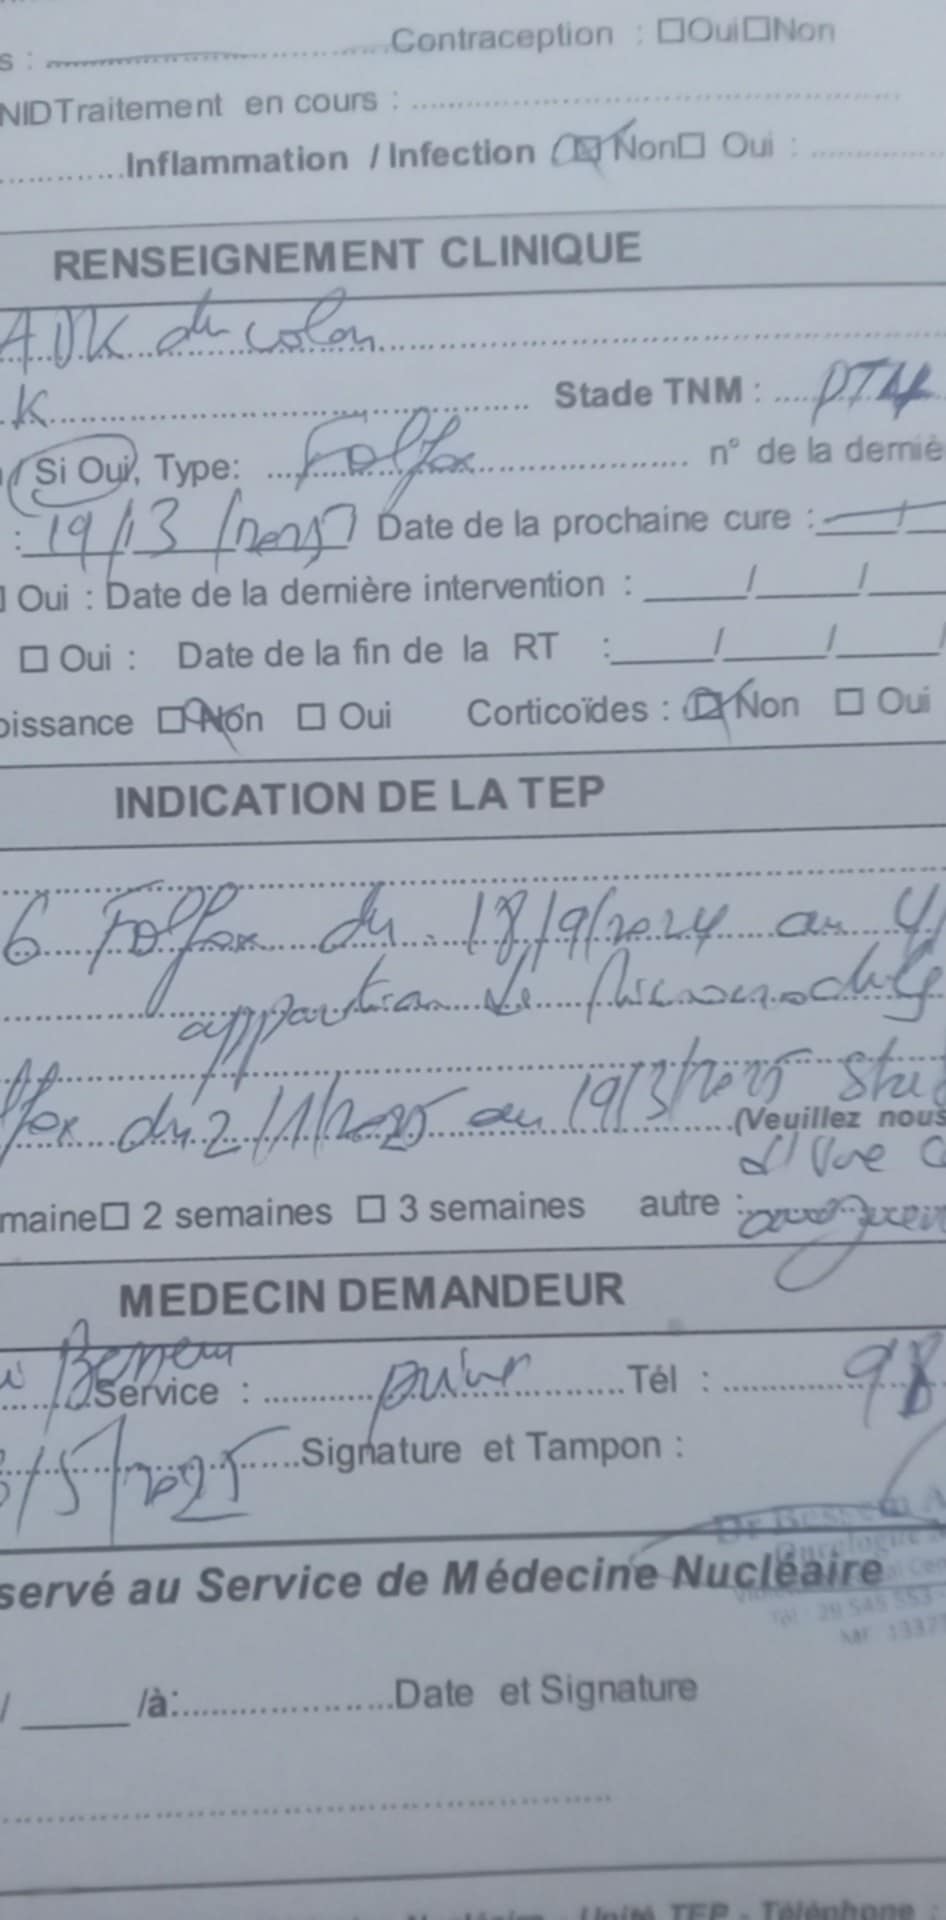 s : ................Contraception : ☐Oui☐Non
NIDTraitement en cours : ................
................Inflammation / Infection ☒Non☐ Oui : ................
RENSEIGNEMENT CLINIQUE
ADK du colon
K................ Stade TNM : .... pT4
Si Oui, Type: .... Folfox ................ n° de la derniè
: 19/13/2025 Date de la prochaine cure :
Oui : Date de la dernière intervention : ____/____/____
☐ Oui : Date de la fin de la RT :____/____/____/
oissance ☒Non ☐ Oui Corticoïdes : ☒Non ☐ Oui
INDICATION DE LA TEP
6 Folfox du 18/9/2024 au 4/
apparition de Micronodules
fox du 2/1/2025 au 19/3/2025
(Veuillez nous
d'une
maine☐ 2 semaines ☐ 3 semaines autre :
MEDECIN DEMANDEUR
Service : ................ Tél : ................98
/5/2025 ....Signature et Tampon :
Dr Bessem A
Oncologue
servé au Service de Médecine Nucléaire
Tél : 29 545 553
MF 1337
/ _____ /à:....................Date et Signature
Unité TEP - Téléphone :